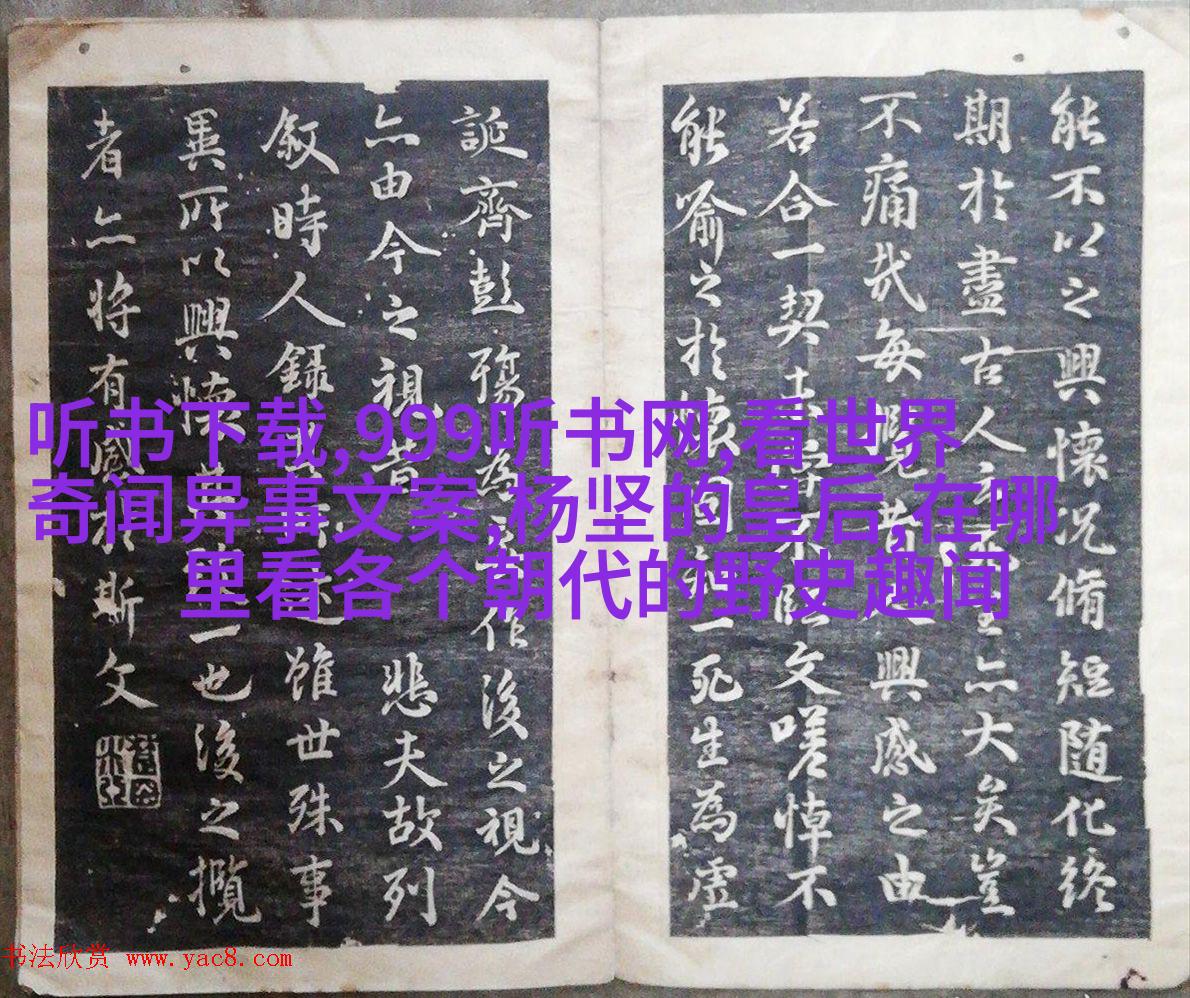 能不以之興懷况脩短随化終
期於盡古人云死生亦大矣豈
不痛哉每覽昔人興感之由
若合一契未嘗不臨文嗟悼不
能喻之於懷固知一死生為虛
誕齊彭殤為妄作後之視今
亦由今之視昔悲夫故列
敘時人録其所述雖世殊事
異所以興懷其致一也後之攬
者亦将有感於斯文
听书下载,999听书网,看世界
奇闻异事文案,杨坚的皇后,在哪
里看各个朝代的野史趣闻
书法欣赏 www.yac8.com